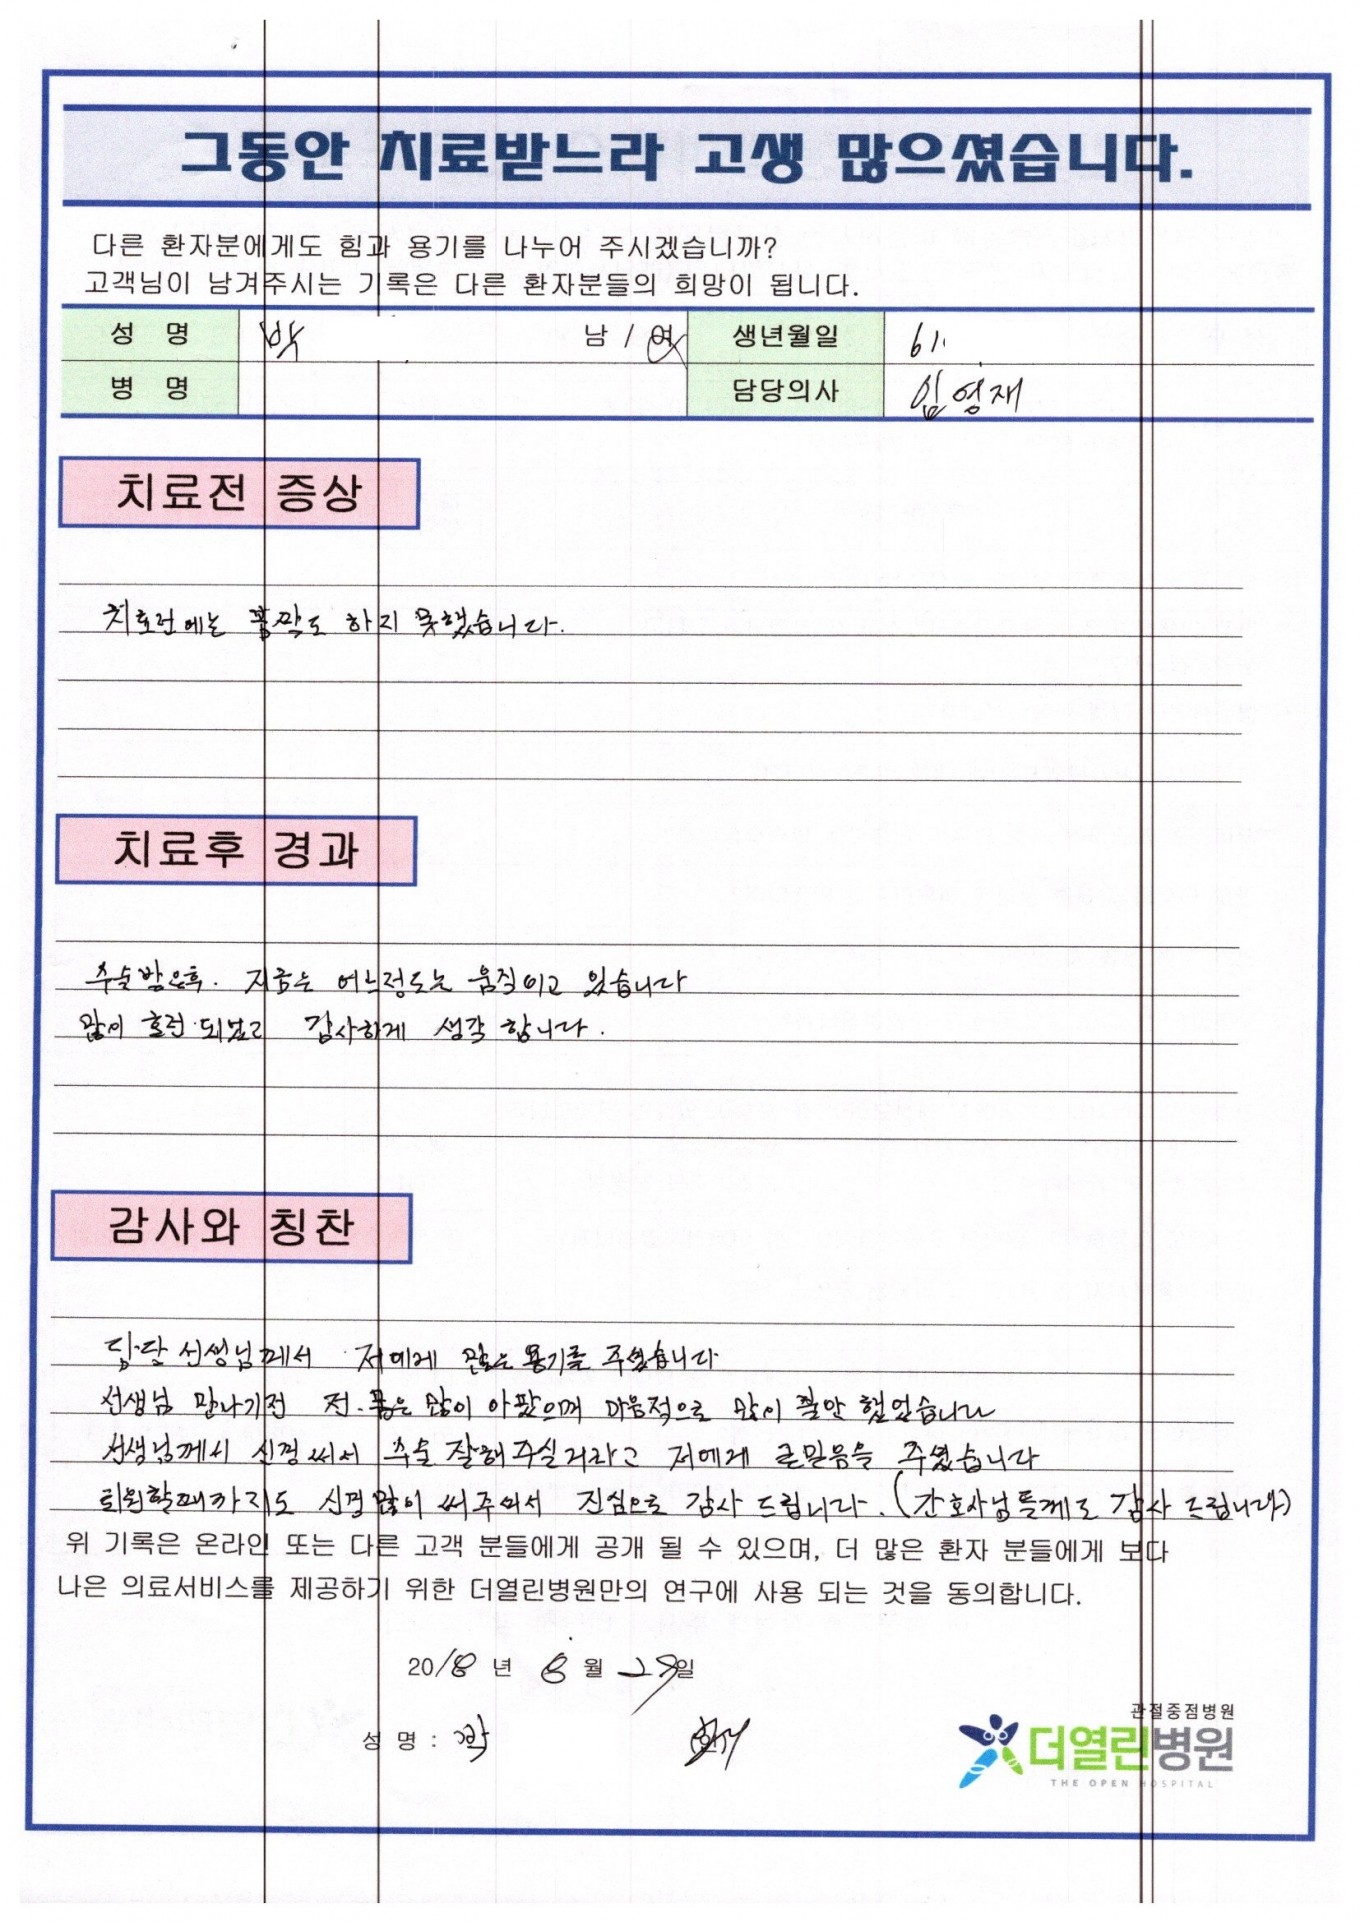 그동안 치료받느라 고생 많으셨습니다.
다른 환자분에게도 힘과 용기를 나누어 주시겠습니까?
고객님이 남겨주시는 기록은 다른 환자분들의 희망이 됩니다.
성 명 박 남 / 여 생년월일 61.
병 명 담당의사 임영재
치료전 증상
치료전에는 꼼짝도 하지 못했습니다.
치료후 경과
수술받은후. 지금은 어느정도는 움직이고 있습니다
많이 호전 되었고 감사하게 생각 합니다.
감사와 칭찬
담당 선생님께서 저에게 많은 용기를 주셨습니다
선생님 만나기전 전. 몸은 많이 아팠으며 마음적으로 많이 불안 했었습니다
선생님께서 신경써서 수술 잘해주실거라고 저에게 큰믿음을 주셨습니다
퇴원할때까지도 신경많이 써주셔서 진심으로 감사 드립니다. (간호사님들께도 감사 드립니다)
위 기록은 온라인 또는 다른 고객 분들에게 공개 될 수 있으며, 더 많은 환자 분들에게 보다
나은 의료서비스를 제공하기 위한 더열린병원만의 연구에 사용 되는 것을 동의합니다.
2018 년 8 월 29일
성 명 : 박
관절중점병원
더열린병원
THE OPEN HOSPITAL